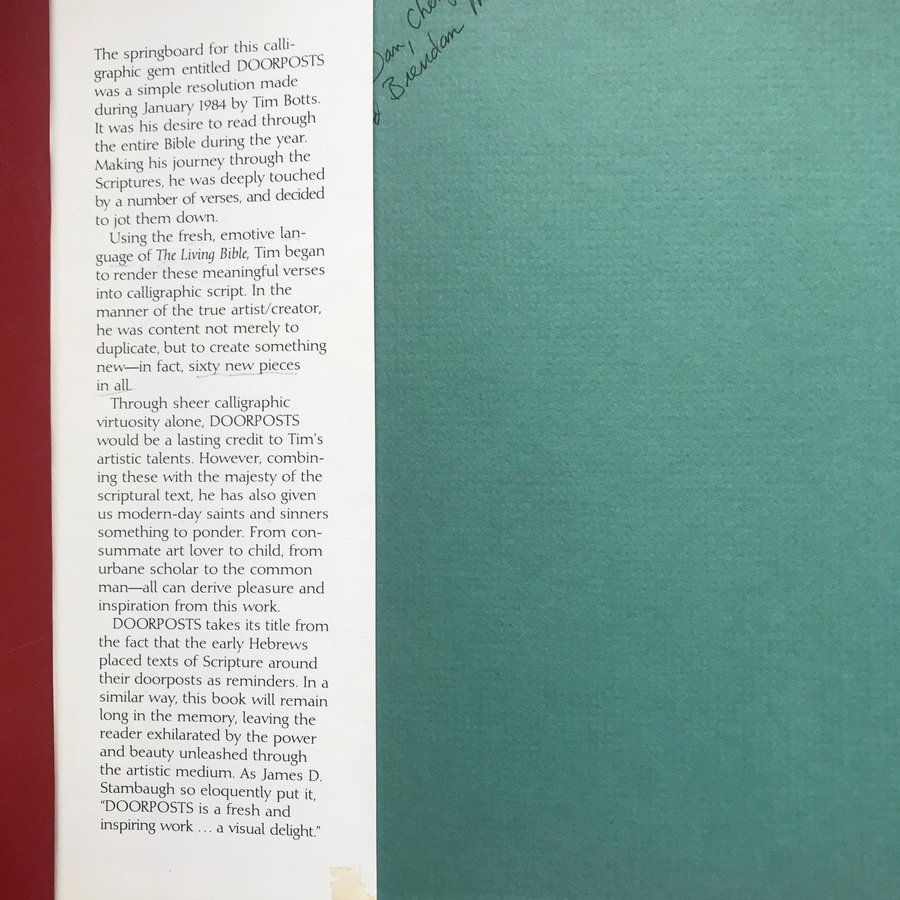 The springboard for this calli-
graphic gem entitled DOORPOSTS
was a simple resolution made
during January 1984 by Tim Botts.
It was his desire to read through
the entire Bible during the year.
Making his journey through the
Scriptures, he was deeply touched
by a number of verses, and decided
to jot them down.
Using the fresh, emotive lan-
guage of The Living Bible, Tim began
to render these meaningful verses
into calligraphic script. In the
manner of the true artist/creator,
he was content not merely to
duplicate, but to create something
new—in fact, sixty new pieces
in all.
Through sheer calligraphic
virtuosity alone, DOORPOSTS
would be a lasting credit to Tim's
artistic talents. However, combin-
ing these with the majesty of the
scriptural text, he has also given
us modern-day saints and sinners
something to ponder. From con-
summate art lover to child, from
urbane scholar to the common
man—all can derive pleasure and
inspiration from this work.
DOORPOSTS takes its title from
the fact that the early Hebrews
placed texts of Scripture around
their doorposts as reminders. In a
similar way, this book will remain
long in the memory, leaving the
reader exhilarated by the power
and beauty unleashed through
the artistic medium. As James D.
Stambaugh so eloquently put it,
“DOORPOSTS is a fresh and
inspiring work ... a visual delight.”
Dan,
Brendan